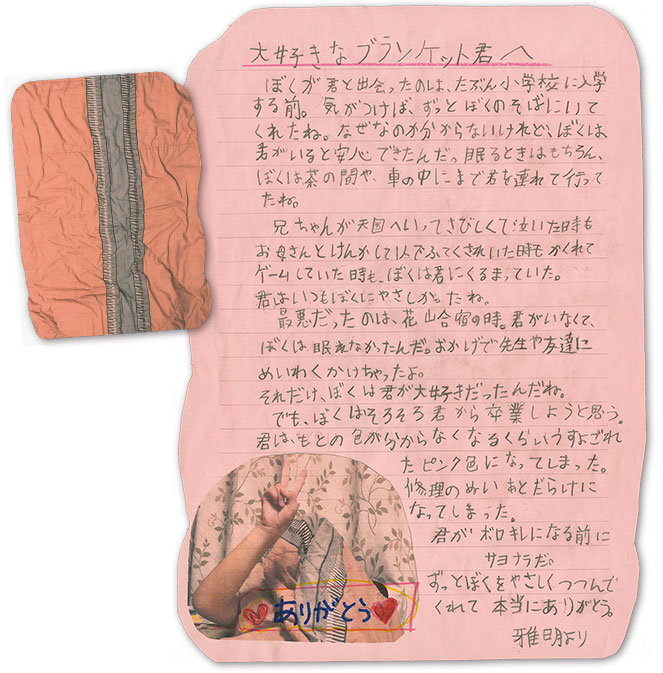 大好きなブランケット君へ
ぼくが君と出会ったのは、たぶん小学校に入学
する前。気がつけば、ずっとぼくのそばにいて
くれたね。なぜなのか分からないけれど、ぼくは
君がいると安心できたんだ。眠るときはもちろん、
ぼくは茶の間や、車の中にまで君を連れて行って
たね。
兄ちゃんが天国へいってさびしくて泣いた時も
お母さんとけんかして1人でふてくされいた時もかくれて
ゲームしていた時も、ぼくは君にくるまっていた。
君はいつもぼくにやさしかったね。
最悪だったのは、花山合宿の時。君がいなくて、
ぼくは眠れなかったんだ。おかげで先生や友達に
めいわくかけちゃったよ。
それだけ、ぼくは君が大好きだったんだね。
でも、ぼくはそろそろ君から卒業しようと思う。
君は、もとの色が分からなくなるくらいうすよごれ
たピンク色になってしまった。
修理のぬいあとだらけに
なってしまった。
君がボロキレになる前に
サヨナラだ。
ずっとぼくをやさしくつつんで
くれて本当にありがとう。
雅明より
ありがとう